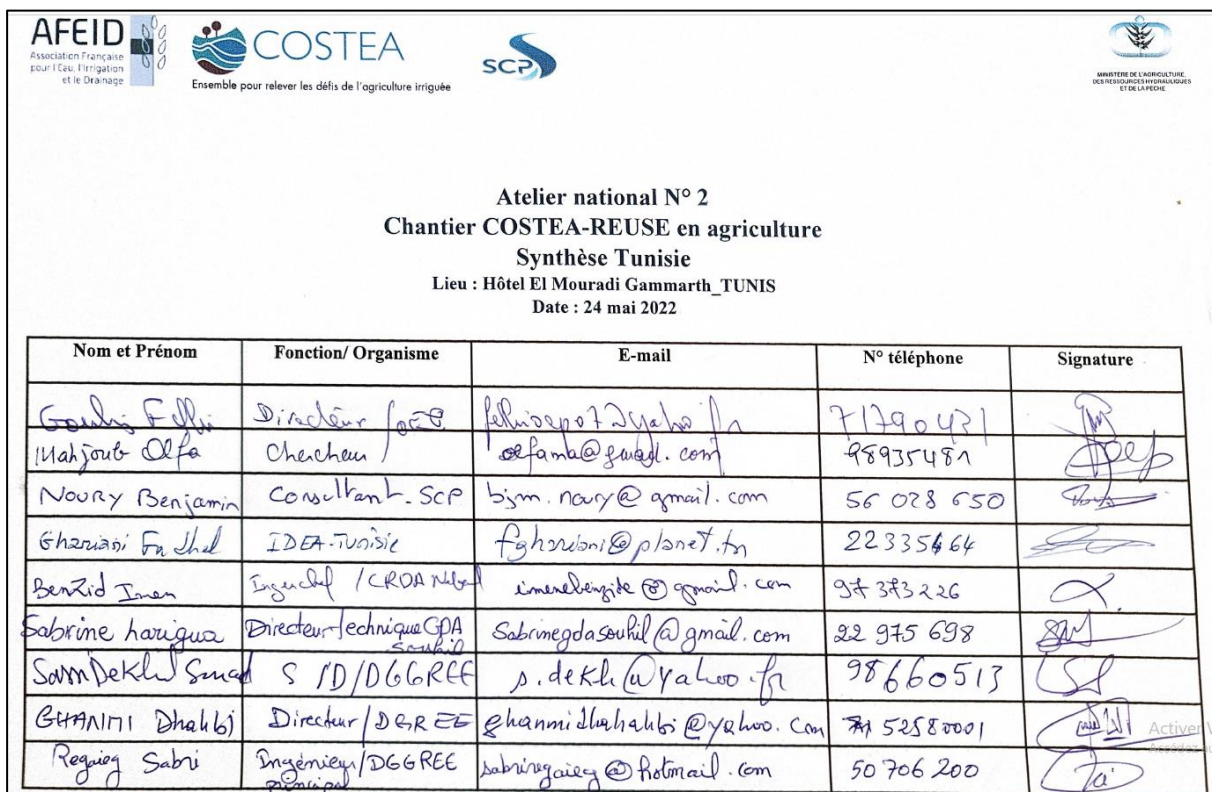 AFEID
Association Française
pour l'Eau, l'Irrigation
et le Drainage
COSTEA
Ensemble pour relever les défis de l'agriculture irriguée
SCP
MINISTERE DE L'AGRICULTURE,
DES RESSOURCES HYDRAULIQUES
ET DE LA PECHE
Atelier national N° 2
Chantier COSTEA-REUSE en agriculture
Synthèse Tunisie
Lieu : Hôtel El Mouradi Gammarth_TUNIS
Date : 24 mai 2022
Nom et Prénom Fonction/ Organisme E-mail N° téléphone Signature
Directeur 71790431
Mahjoub Olfa Chercheur olfama@gmail.com 98935481
NOURY Benjamin Consultant-SCP bjm.noury@gmail.com 56 028 650
Ghariani Fadhel IDEA-Tunisie fghariani@planet.tn 22335664
Benzid Imen /CRDA Nabeul imenebenzide@gmail.com 97 373 226
Sabrine harigua Directeur technique GDA Souhil Sabrinegdasouhil@gmail.com 22 975 698
S/D/DGGREE s.dekh@yahoo.fr 98660513
GHANMI Dhahbi Directeur/DGREE ghanmidhahahbi@yahoo.com 52580001
Regaieg Sabri Ingénieur/DGGREE principal sabriregaieg@hotmail.com 50 706 200
Activer